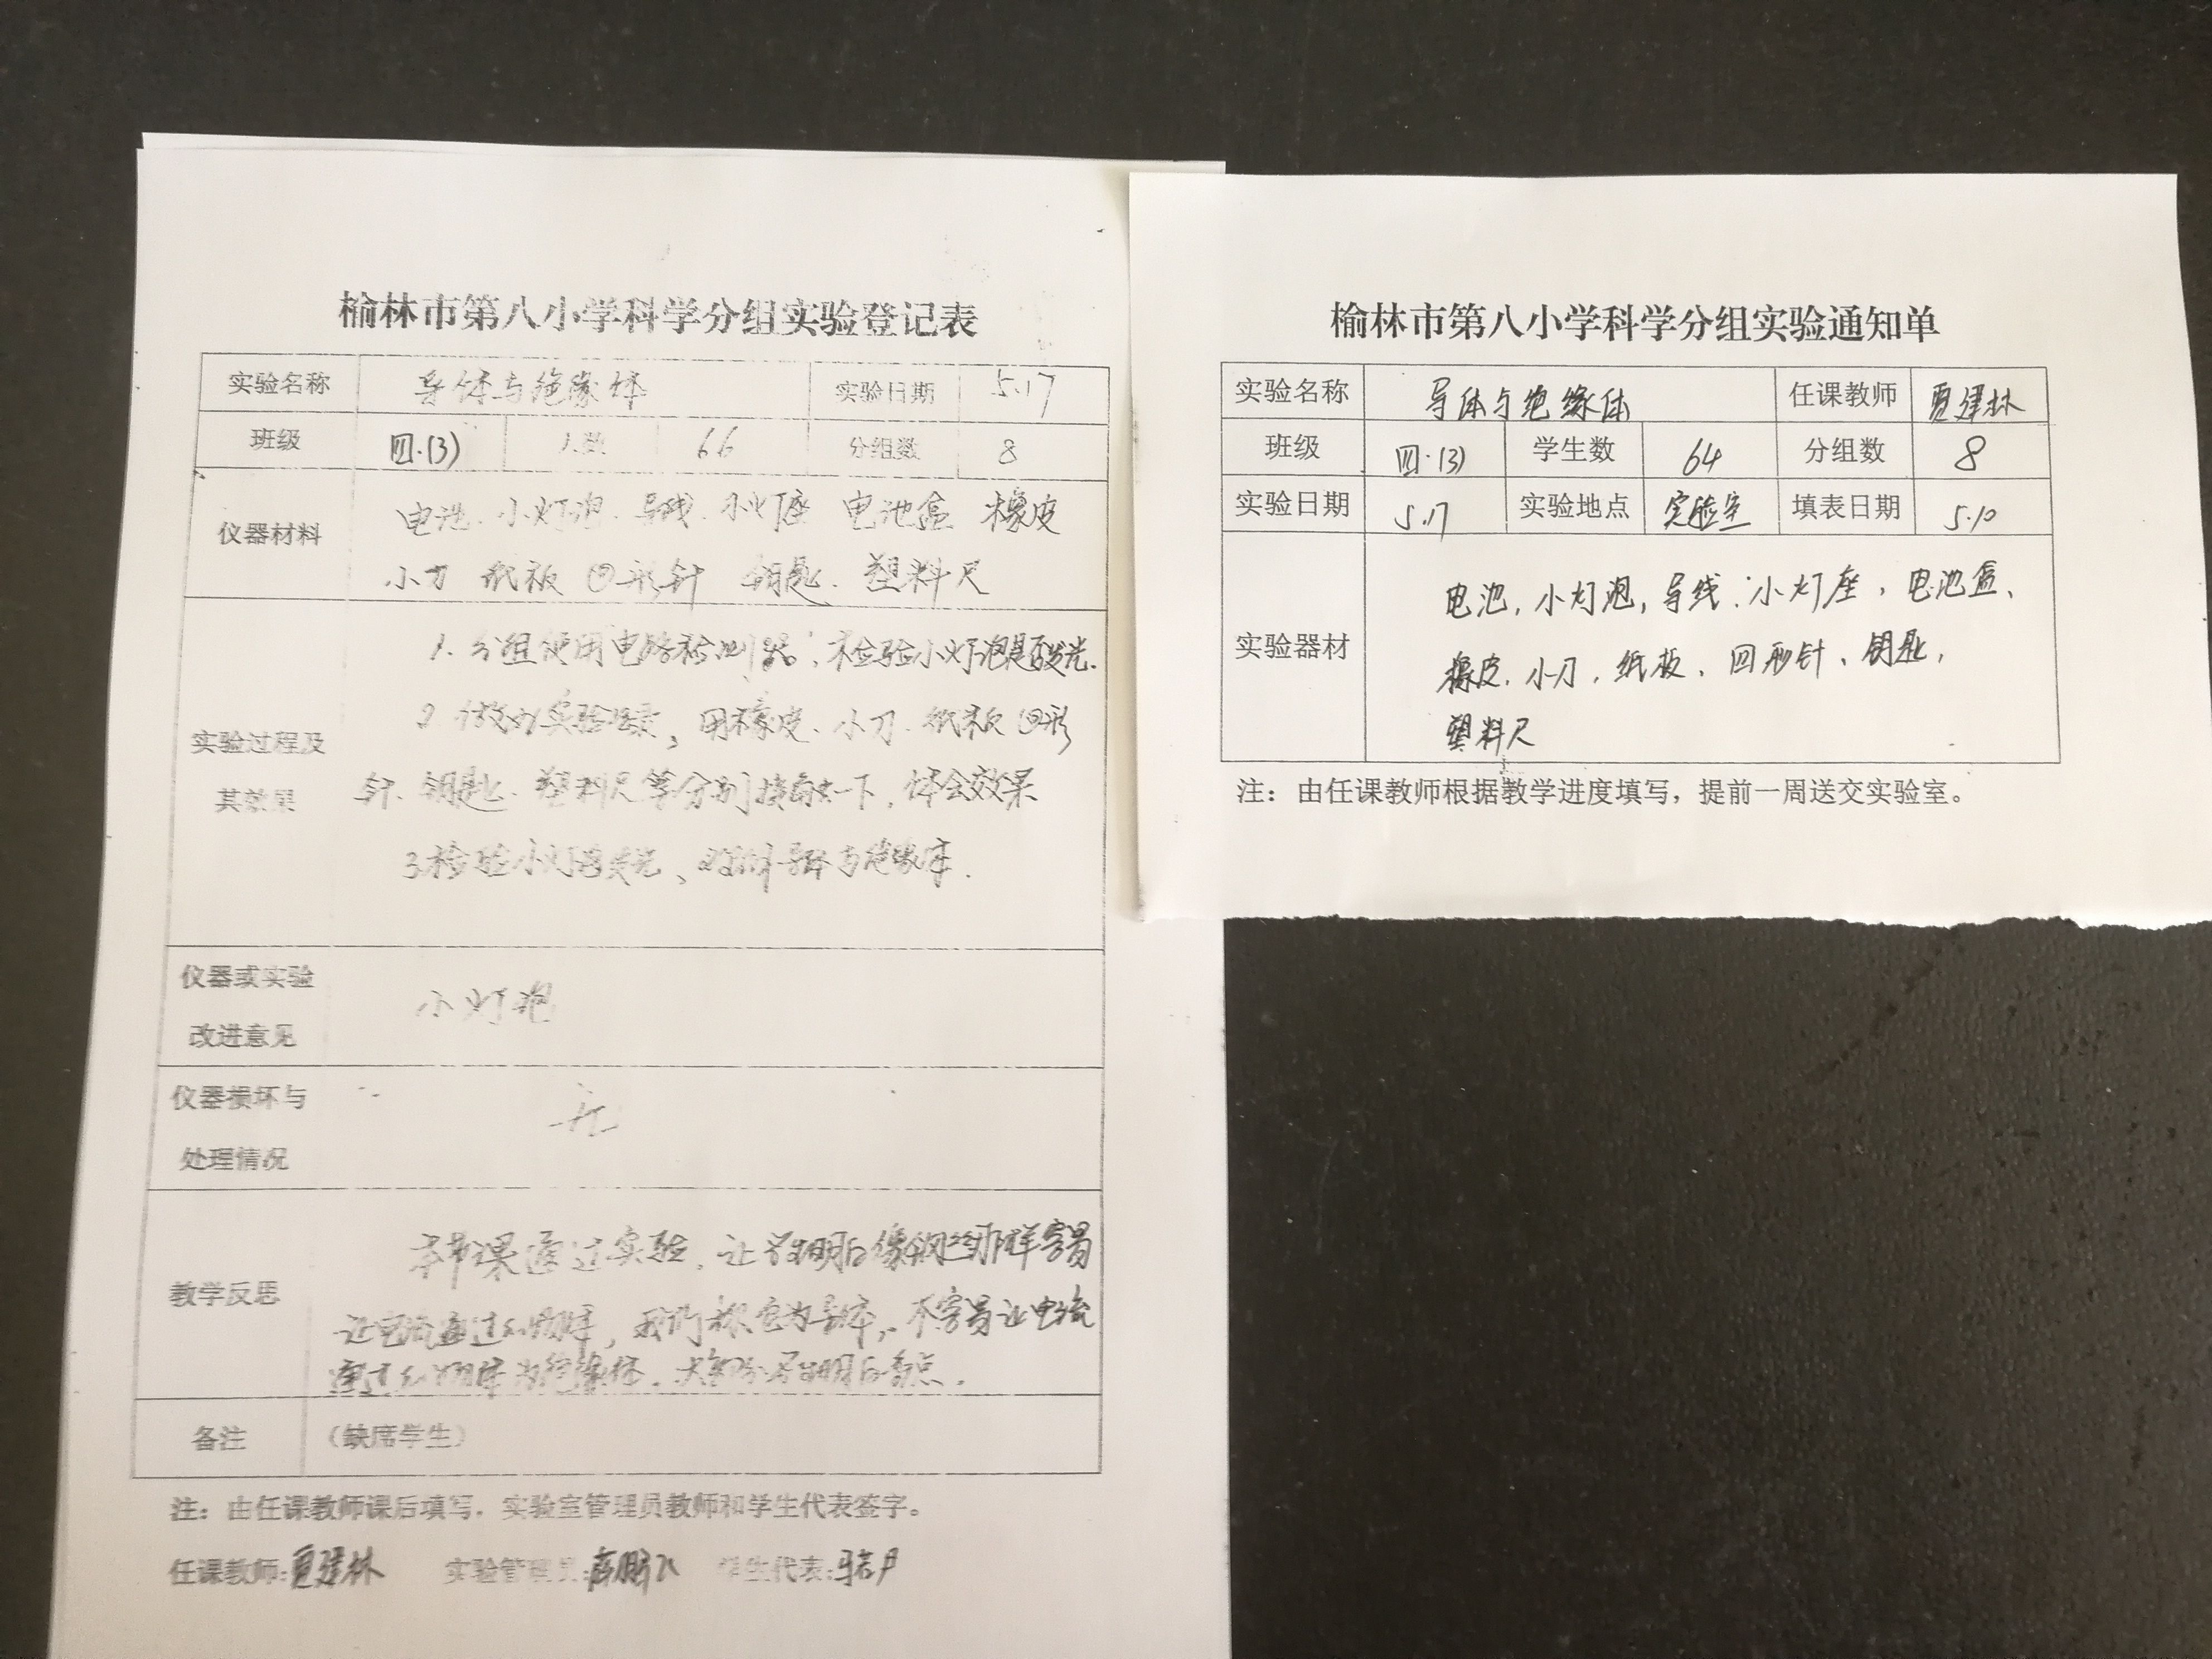 榆林市第八小学科学分组实验登记表
实验名称 导体与绝缘体 实验日期 5.17
班级 四·(3) 人数 66 分组数 8
仪器材料
电池、小灯泡、导线、小灯座 电池盒 橡皮
小刀 纸板 回形针 钥匙、塑料尺
实验过程及
其效果
1. 分组使用电路检测器,检验小灯泡是否发光.
2 做好实验记录,用橡皮、小刀、纸板 回形
针、钥匙、塑料尺等分别接触一下,体会效果
3.检验小灯泡发光、导体与绝缘体.
仪器或实验
改进意见
小灯泡
仪器损坏与
处理情况
无
教学反思
本节课通过实验,让学生明白像铜丝那样容易
让电流通过的物体,我们称它为导体,不容易让电流
通过的物体为绝缘体.大部分学生明白.
备注 (缺席学生)
注:由任课教师课后填写,实验室管理员教师和学生代表签字。
任课教师:夏建林 实验管理员: 学生代表:
榆林市第八小学科学分组实验通知单
实验名称 导体与绝缘体 任课教师 夏建林
班级 四·(3) 学生数 64 分组数 8
实验日期 5.17 实验地点 实验室 填表日期 5.10
实验器材
电池,小灯泡,导线、小灯座,电池盒、
橡皮,小刀,纸板、回形针、钥匙,
塑料尺
注:由任课教师根据教学进度填写,提前一周送交实验室。